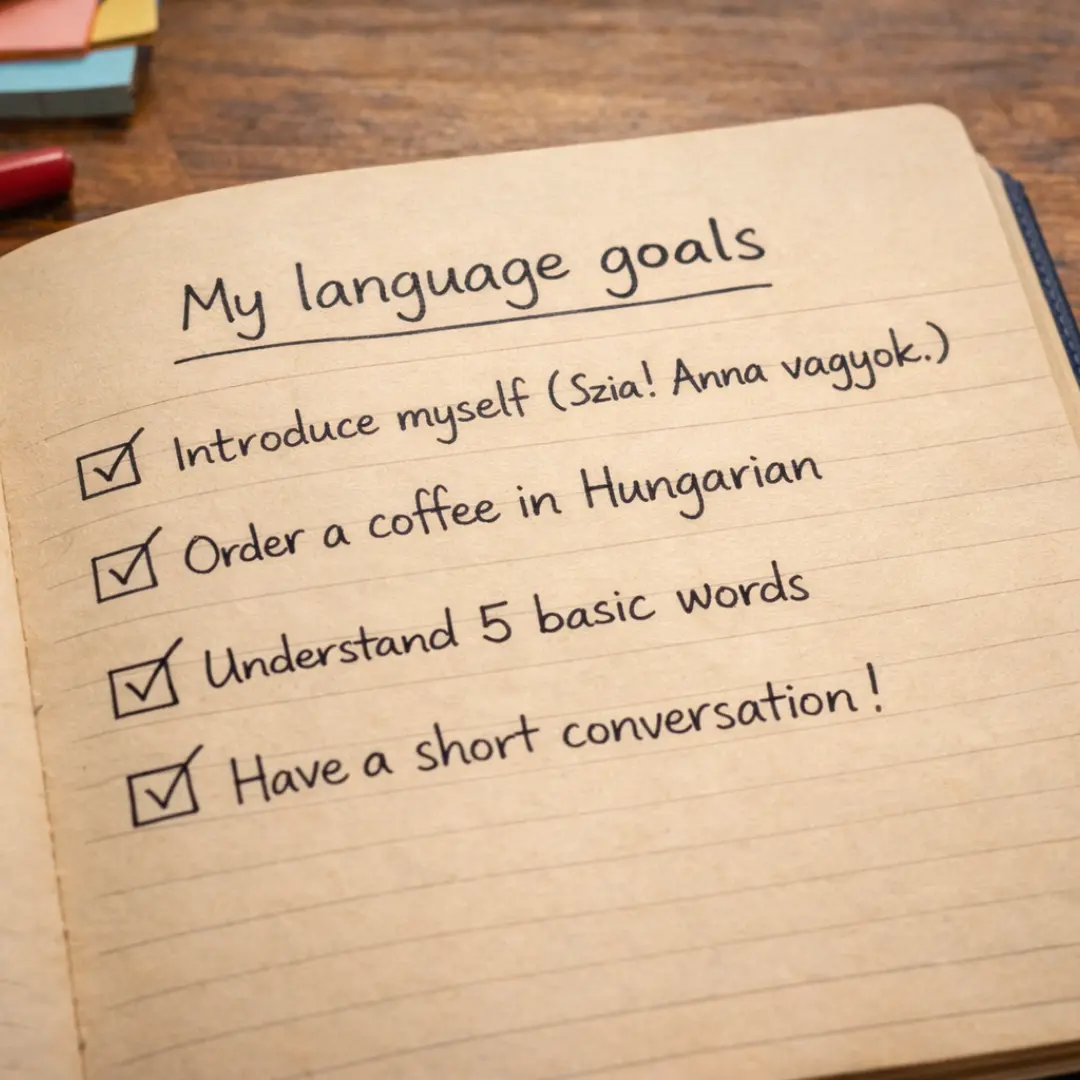 My language goals
☑ Introduce myself (Szia! Anna vagyok.)
☑ Order a coffee in Hungarian
☑ Understand 5 basic words
☑ Have a short conversation!